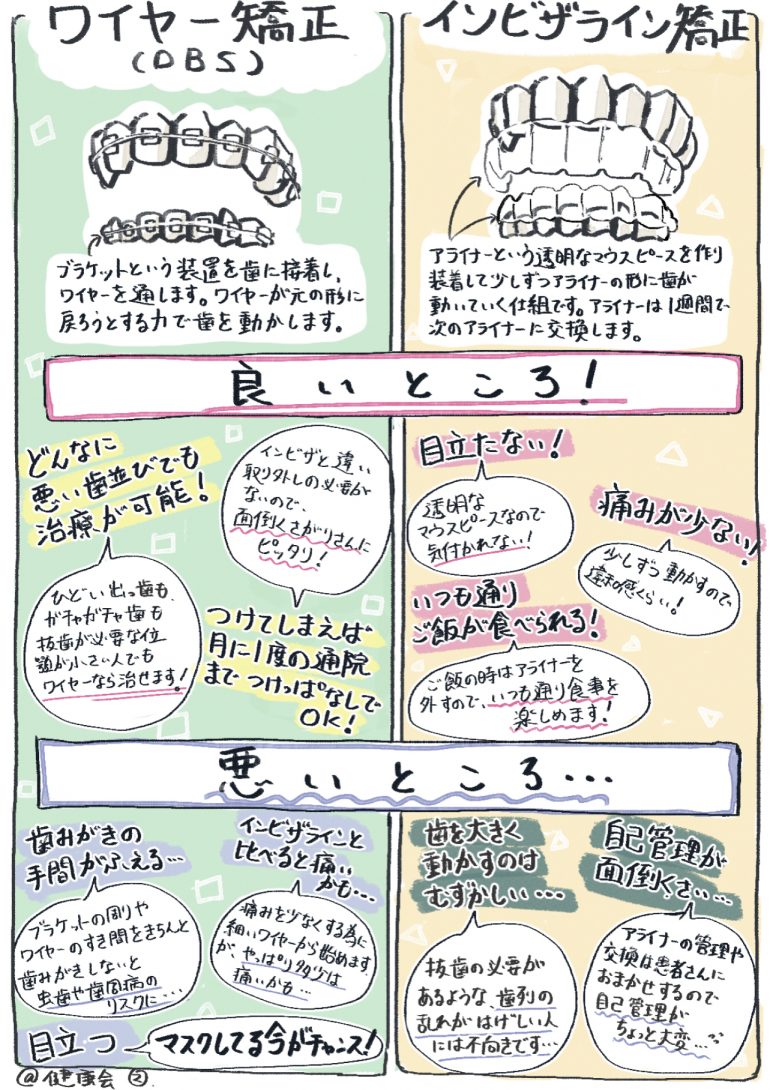 ワイヤー矯正
(DBS)
ブラケットという装置を歯に接着し、
ワイヤーを通します。ワイヤーが元の形に
戻ろうとする力で歯を動かします。
インビザライン矯正
アライナーという透明なマウスピースを作り
装着して少しずつアライナーの形に歯が
動いていく仕組です。アライナーは1週間で
次のアライナーに交換します。
良いところ!
どんなに
悪い歯並びでも
治療が可能!
ひどい出っ歯も、
ガチャガチャ歯も
抜歯が必要な位
顎が小さい人でも
ワイヤーなら治せます!
インビザと違い
取り外しの必要が
ないので、
面倒くさがりさんに
ピッタリ!
つけてしまえば
月に1度の通院
までつけっぱなしで
OK!
目立たない!
透明な
マウスピースなので
気付かれない!
痛みが少ない!
少しずつ動かすので
違和感くらい!
いつも通り
ご飯が食べられる!
ご飯の時はアライナーを
外すので、いつも通り食事を
楽しめます!
悪いところ…
歯みがきの
手間がふえる…
ブラケットの周りや
ワイヤーのすき間をきちんと
歯みがきしないと
虫歯や歯周病の
リスクに…
インビザラインと
比べると痛い
かも…
痛みを少なくする為に
細いワイヤーから始めます
が、やっぱり多少は
痛いかも…
目立つ
マスクしてる今がチャンス!
歯を大きく
動かすのは
むずかしい…
抜歯の必要が
あるような、歯列の
乱れがはげしい人
には不向きです…
自己管理が
面倒くさい…
アライナーの管理や
交換は患者さんに
おまかせするので
自己管理が
ちょっと大変…
@健康会